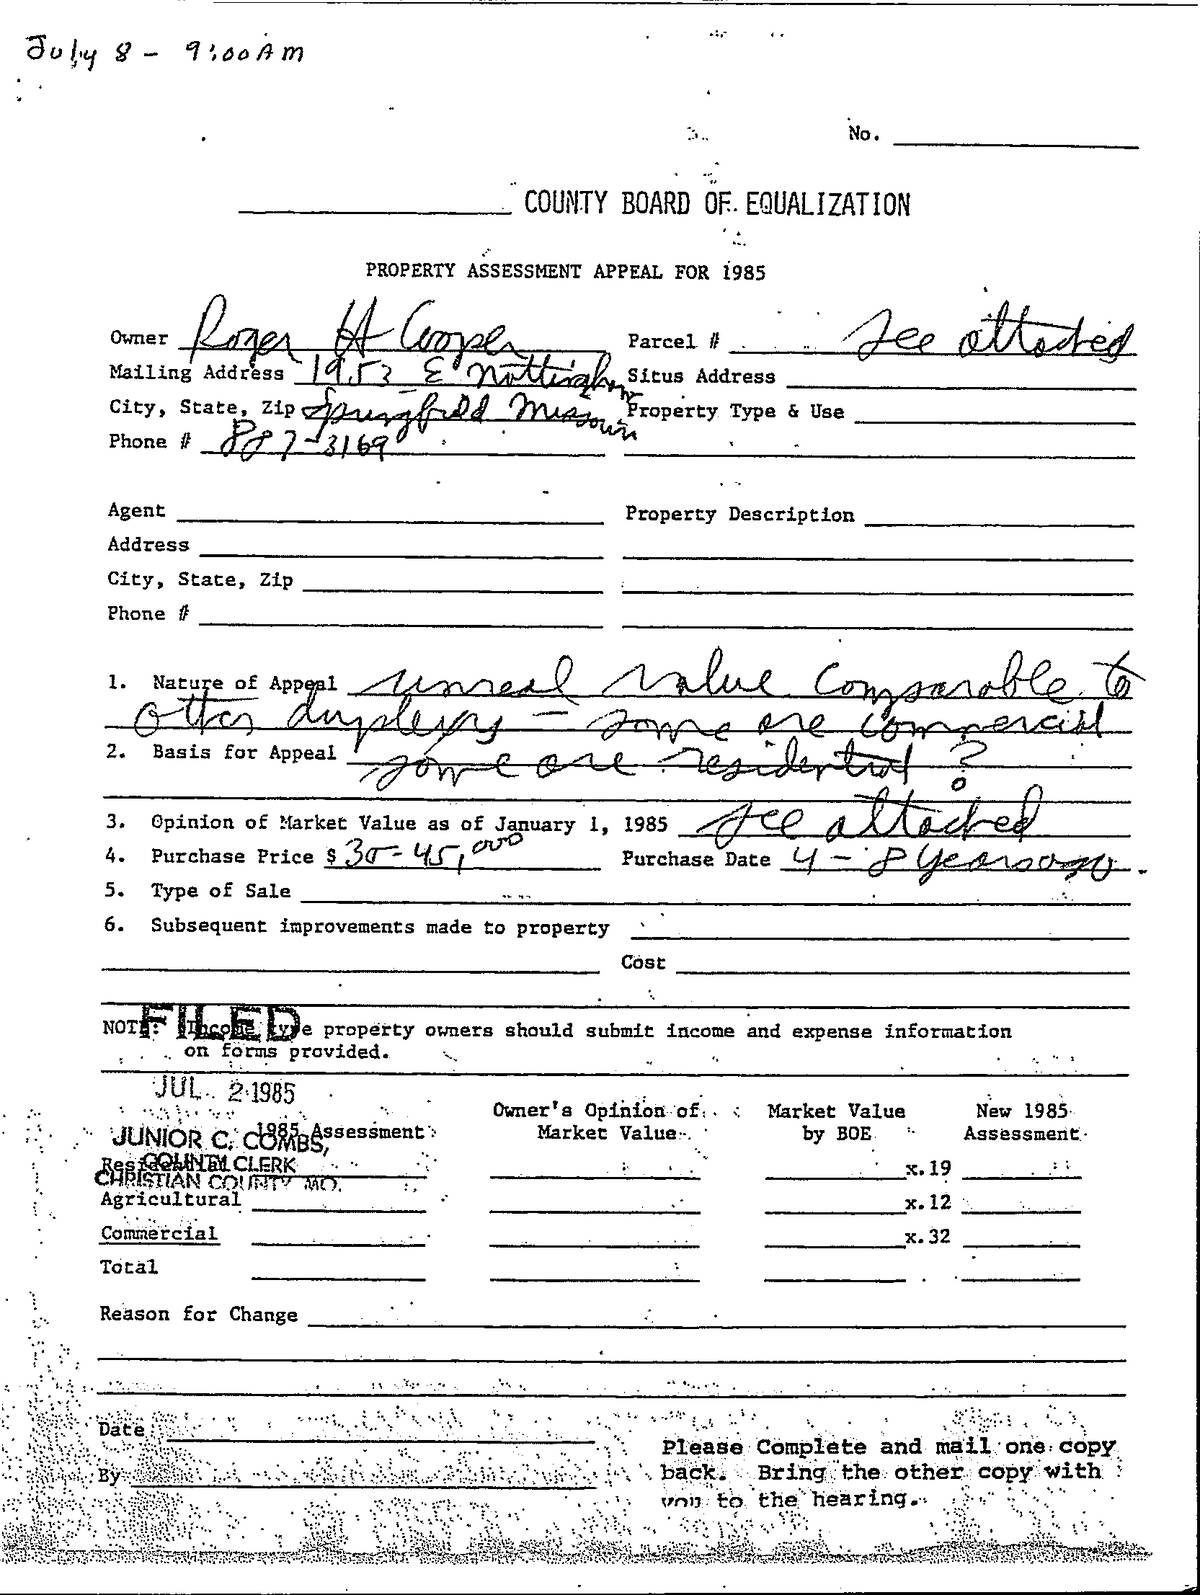 July 8 - 9:00 AM
No.
COUNTY BOARD OF EQUALIZATION
PROPERTY ASSESSMENT APPEAL FOR 1985
Owner Roger H Cooper Parcel # See attached
Mailing Address 1953 E Nottingham Situs Address
City, State, Zip Springfield Missouri Property Type & Use
Phone # 887-3169
Agent Property Description
Address
City, State, Zip
Phone #
1. Nature of Appeal unreal value comparable to
other duplexes - some are commercial
2. Basis for Appeal some are residential ?
3. Opinion of Market Value as of January 1, 1985 see attached
4. Purchase Price $ 30-45,000 Purchase Date 4 - 8 years ago.
5. Type of Sale
6. Subsequent improvements made to property
Cost
FILED
NOTE: Income type property owners should submit income and expense information
on forms provided.
JUL 2 1985
1985 Assessment Owner's Opinion of Market Value Market Value by BOE New 1985 Assessment
JUNIOR C. COMBS,
COUNTY CLERK
CHRISTIAN COUNTY MO.
Residential x.19
Agricultural x.12
Commercial x.32
Total
Reason for Change
Date
By
Please Complete and mail one copy
back. Bring the other copy with
you to the hearing.